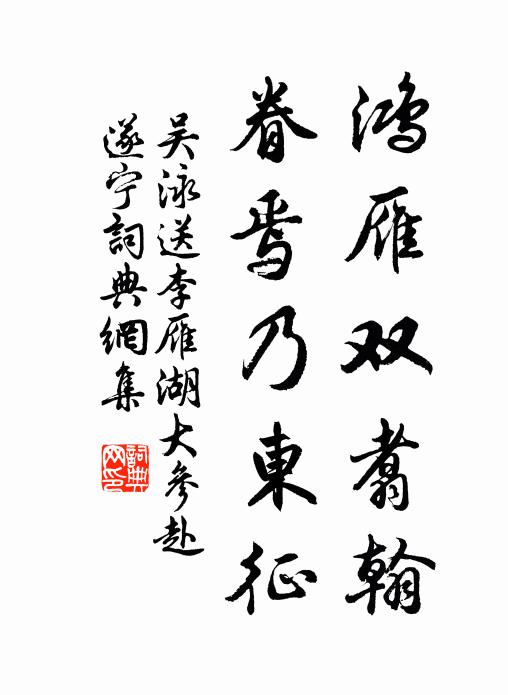 鸿雁双翥翰
眷焉乃東征
吴泳送李雁湖大參赴
遂宁詞典網集
詞典网印